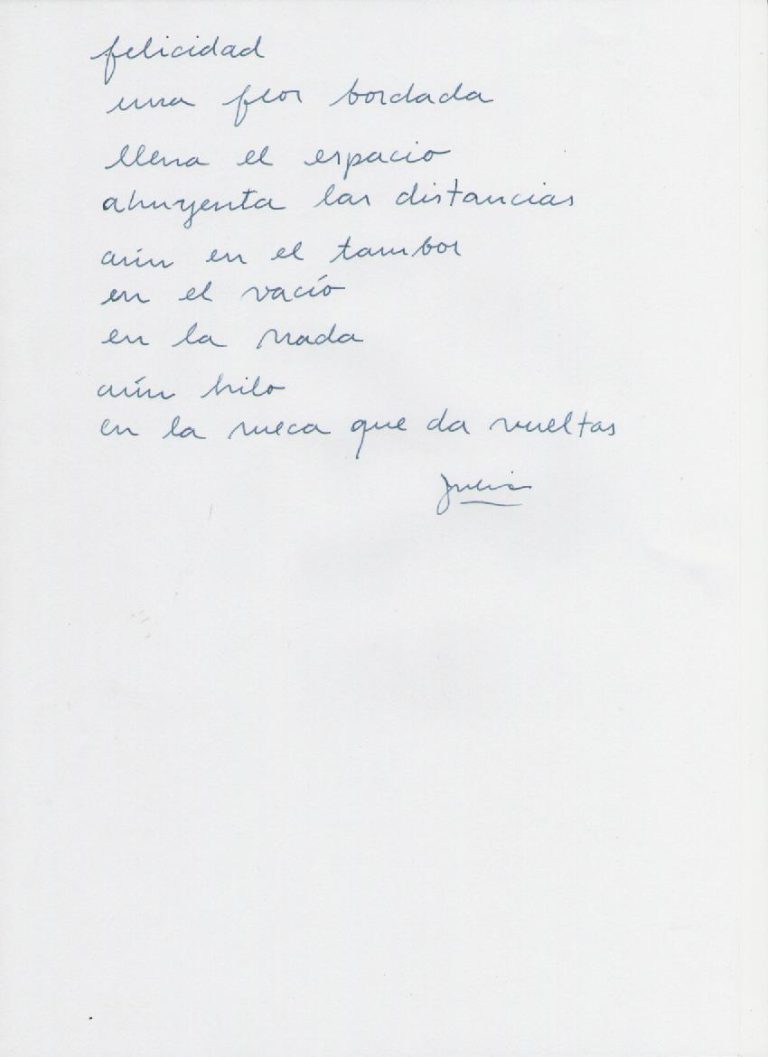 felicidad
una flor bordada
llena el espacio
ahuyenta las distancias
aún en el tambor
en el vacío
en la nada
aún hilo
en la rueca que da vueltas
Julia